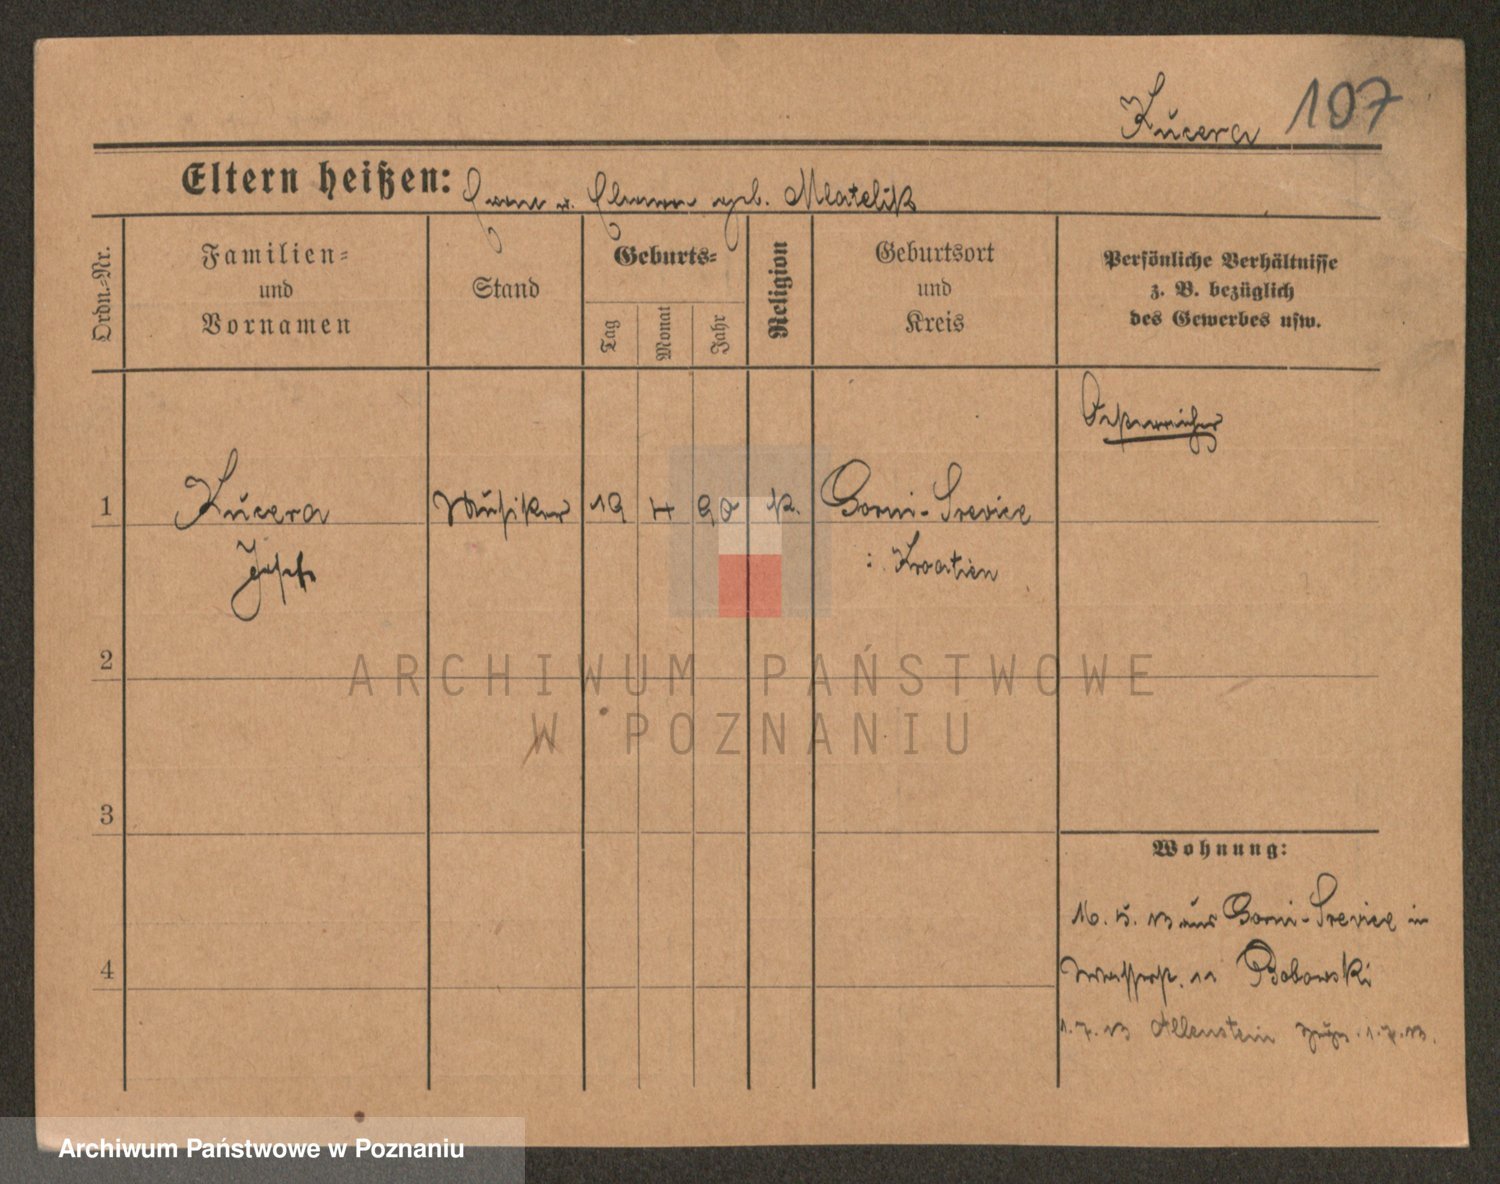 Kučera 107
Eltern heißen: u. geb. Mlatelik
Ordn.-Nr.
Familien-
und
Vornamen
Stand
Geburts-
Tag
Monat
Jahr
Religion
Geburtsort
und
Kreis
Persönliche Verhältnisse
z. B. bezüglich
des Gewerbes usw.
Oesterreicher
1 Kučera Musiker 19 4 90 k. Gorni-Srevice
Josef : Kroatien
2
ARCHIWUM PAŃSTWOWE
W POZNANIU
3
Wohnung:
16. 5. 13 aus Gorni-Srevice in
4
Wasserst. 11 Bobowski
1. 7. 13 Allenstein 1. 7. 13.
Archiwum Państwowe w Poznaniu